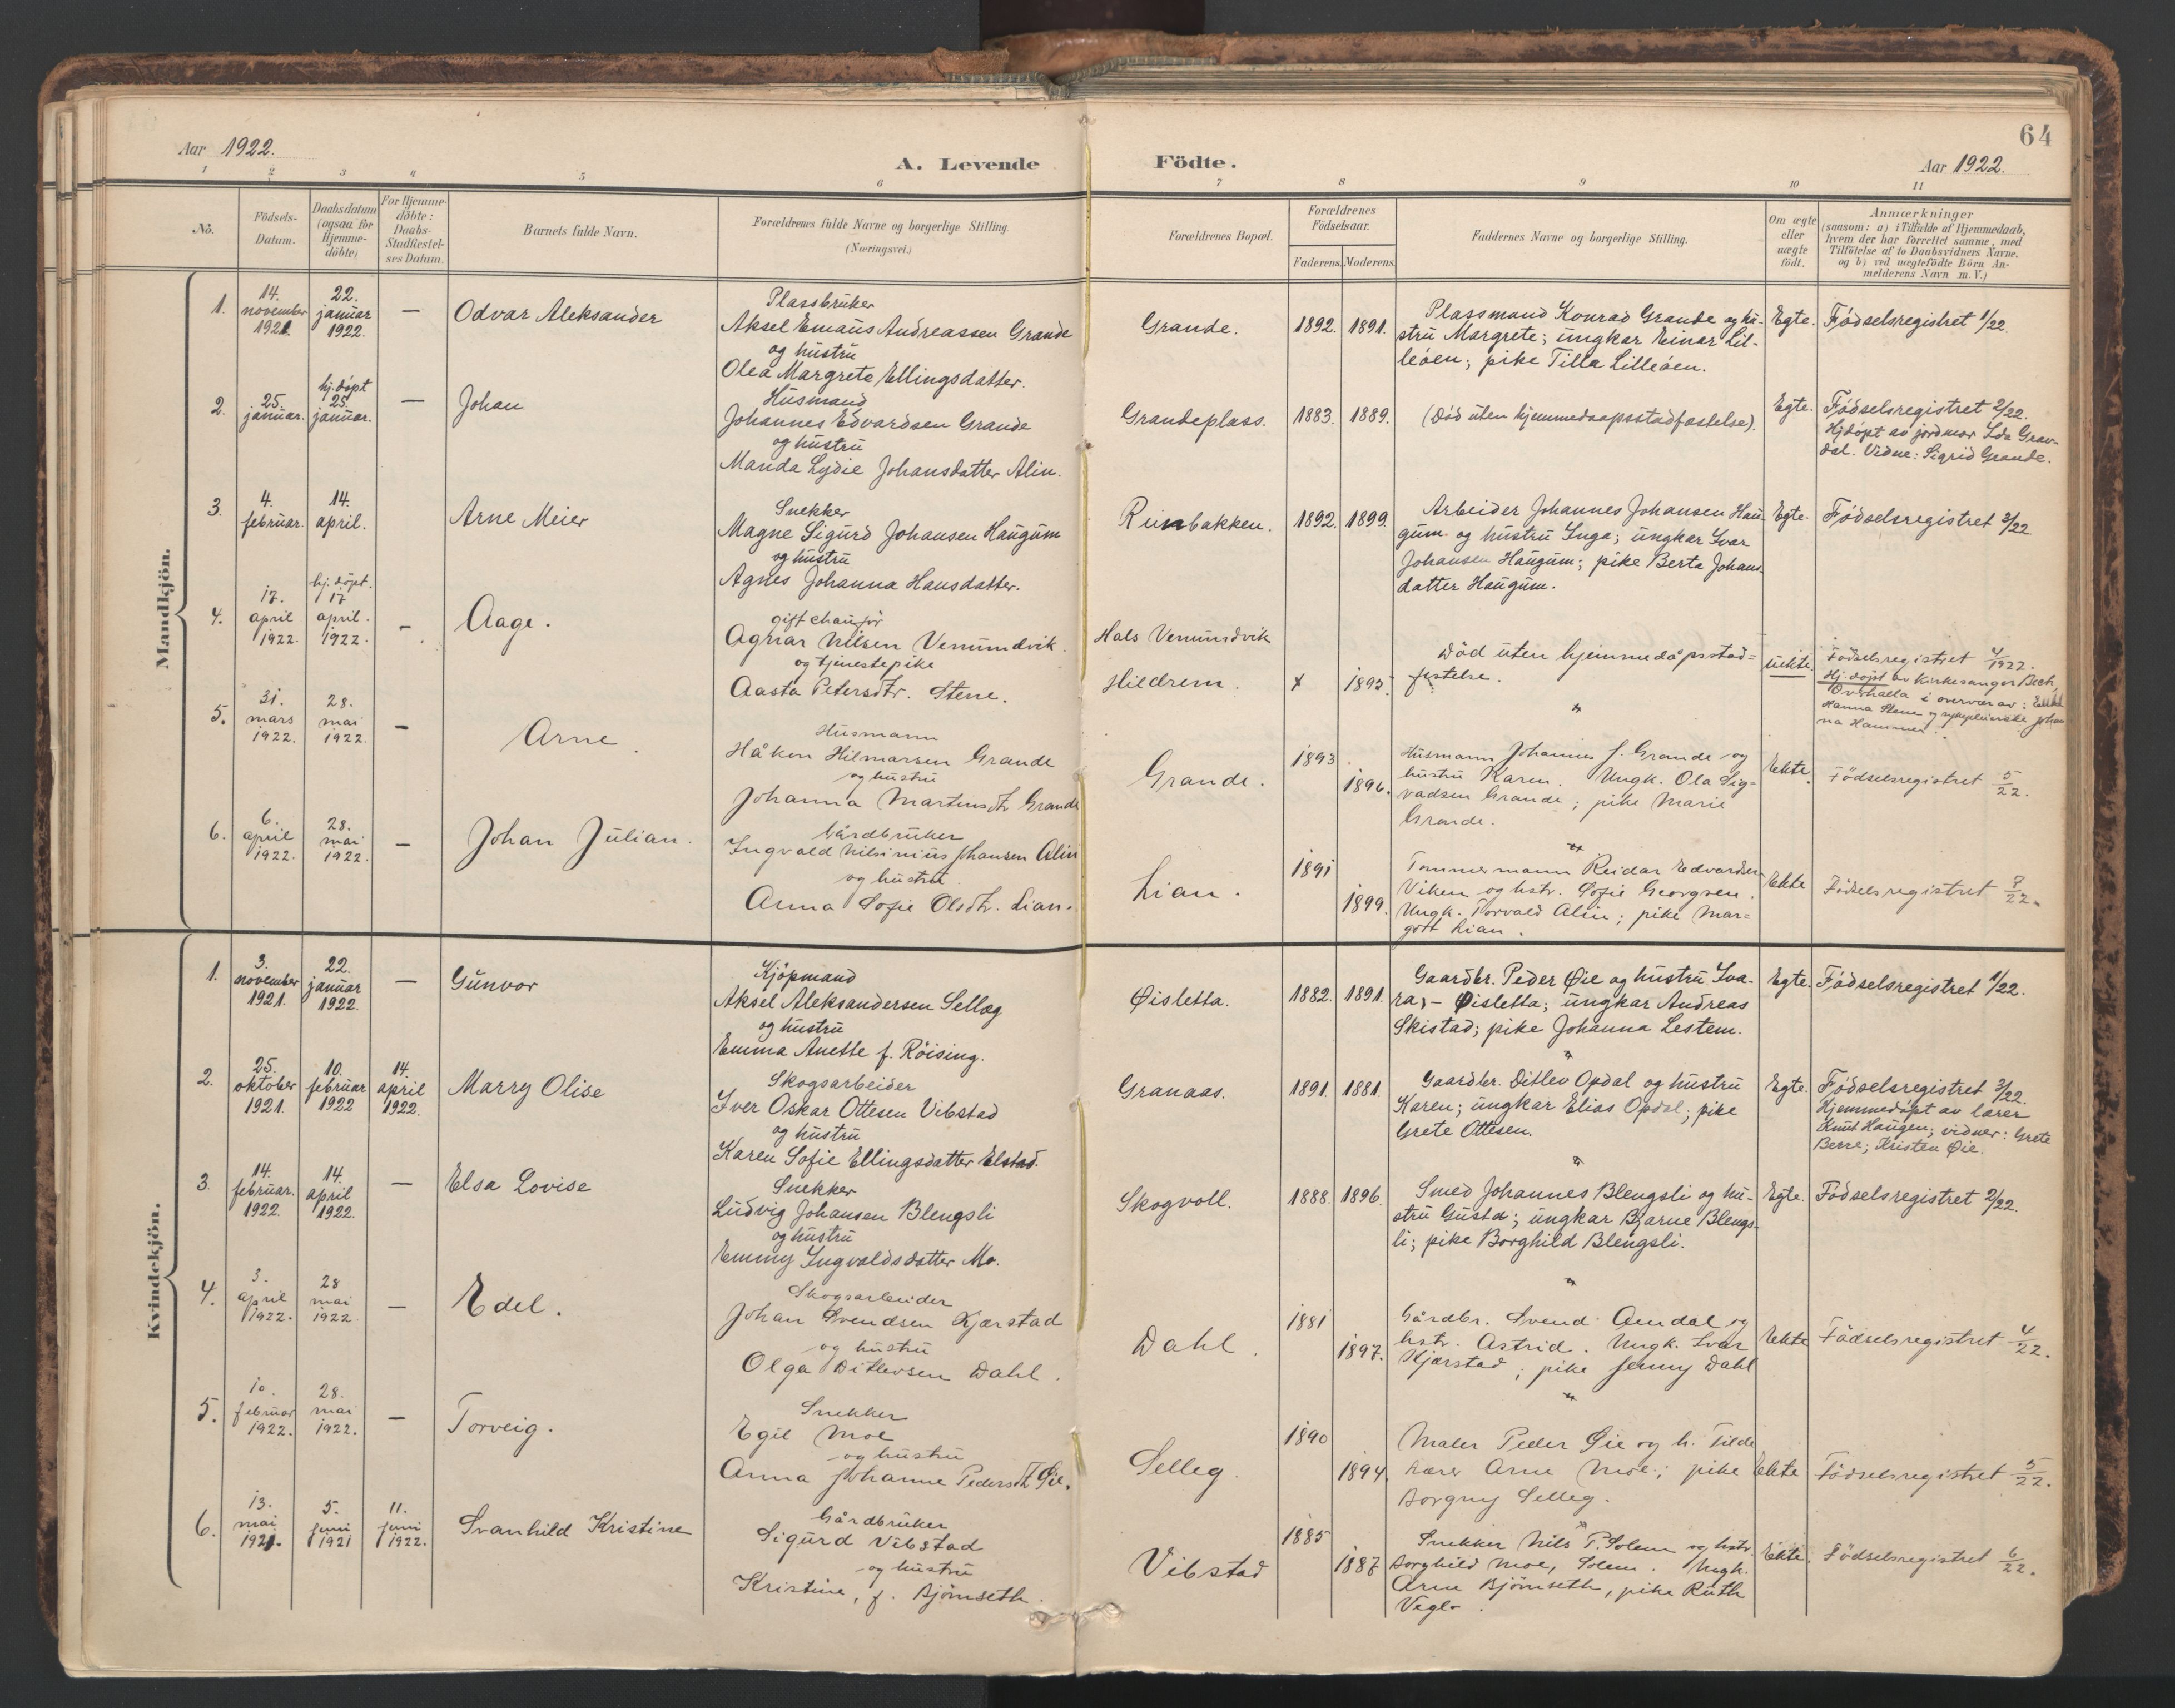 64
Aar 1922.
A. Levende Födte.
Aar 1922.
1 2 3 4 5 6 7 8 9 10 11
No.
Födsels-
Datum.
Daabsdatum
(ogsaa for
Hjemme-
döbte)
For Hjemme-
döbte:
Daabs-
Stadfæstel-
ses Datum.
Barnets fulde Navn.
Forældrenes fulde Navne og borgerlige Stilling.
(Næringsvei.)
Forældrenes Bopæl.
Forældrenes
Födselsaar.
Faderens. Moderens.
Faddernes Navne og borgerlige Stilling.
Om ægte
eller
uægte
födt.
Anmærkninger
(saasom: a) i Tilfælde af Hjemmedaab,
hvem der har forrettet samme, med
Tilföielse af to Daabsvidners Navne.
og b) ved uægtefödte Börn An-
melderens Navn m. V.)
Mandkjön.
1.
14.
november
1921.
22.
januar
1922.
—
Odvar Aleksander
Plassbruker
Aksel Emaus Andreassen Grande
og hustru
Olea Margrete Ellingsdatter.
Grande.
1892. 1891.
Plassmand Konrad Grande og hu-
stru Margrete; ungkar Einar Lil-
leöen; pike Tilla Lilleöen.
Egte.
Födselsregistret 1/22.
2.
25.
januar.
hj. döpt
25.
januar.
—
Johan
Husmand
Johannes Edvardsen Grande
og hustru
Manda Lydie Johansdatter Alin.
Grandeplass.
1883. 1889.
(Död uten hjemmedaapsstadfæstelse).
Egte.
Födselsregistret 2/22.
Hjdöpt av jordmor Ida Grav-
dal. Vidne: Sigrid Grande.
3.
4.
februar.
14.
april.
Arne Meier
Snekker
Magne Sigurd Johansen Haugum
og hustru
Agnes Johanna Hansdatter.
Reinbakken.
1892. 1899.
Arbeider Johannes Johansen Hau-
gum og hustru Inga; ungkar Ivar
Johansen Haugum; pike Berta Johans-
datter Haugum.
Egte.
Födselsregistret 3/22
4.
17.
april
1922.
hj. döpt.
17
april.
1922.
—
Aage.
gift chauför
Agnar Nilsen Vemundvik.
og tjenestepike
Aasta Petersdtr. Stene.
Hals Vemundvik
Hildrem.
x 1895.
Död uten hjemmedåpsstad-
festelse.
uekte
Födselsregistret 4/1922.
Hj. döpt av Kirkesanger Bech,
Overhalla i overvær av:
Hanna Stene og sykepleierske Johan
na Hammer.
5.
31.
mars
1922.
28.
mai
1922.
—
Arne.
Husmann
Håkon Hilmarsen Grande
og hustru
Johanna Martinsdtr Grande
Grande.
1893 1896.
"
Husmann Johannes J. Grande og
hustru Karen. Ungk. Ola Sig-
vadsen Grande; pike Marie
Grande.
Ekte.
Födselsregistret 5/22.
6.
6.
april
1922.
28.
mai
1922.
—
Johan Julian.
Gårdbruker
Ingvald Nilsinius Johansen Alin
og hustru
Anna Sofie Olsdtr. Lian.
Lian.
1891 1899.
"
Tömmermann Reidar Edvardsen
Viken og hstr. Sofie Georgsen.
Ungk. Torvald Alin; pike Mar-
gott Lian.
Ekte
Födselsregistret 7/22.
Kvindekjön.
1.
3.
november
1921.
22.
januar
1922.
—
Gunvor
Kjöpmand
Aksel Aleksandersen Selleg
og hustru
Emma Anette f. Röising.
Øisletta.
1882. 1891.
Gaardbr. Peder Øie og hustru Iva-
ra, - Øisletta; ungkar Andreas
Skistad; pike Johanna Lestem.
Egte.
Födselsregistret 1/22.
2.
25.
oktober
1921.
10.
februar
1922
14.
april
1922.
Marry Olise
Skogsarbeider
Iver Oskar Ottesen Vibstad
og hustru
Karen Sofie Ellingsdatter Elstad.
Granaas.
1891. 1881.
"
Gaardbr. Ditlev Opdal og hustru
Karen; ungkar Elias Opdal; pike
Grete Ottesen.
Egte.
Födselsregistret 3/22.
Hjemmedöpt av lærer
Knut Haugen; vidner: Grete
Berre; Kristen Øie.
3.
14.
februar.
1922.
14.
april
1922.
—
Elsa Lovise
Snekker
Ludvig Johansen Blengsli
og hustru
Emmy Ingvaldsdatter Mo.
Skogvoll.
1888. 1896.
"
Smed Johannes Blengsli og hu-
stru Gusta; ungkar Bjarne Blengs-
li; pike Borghild Blengsli.
Egte.
Födselsregistret 2/22.
4.
3.
april
1922.
28
mai
1922
—
Edel.
Skogsarbeider
Johan Svendsen Kjærstad
og hustru
Olga Ditlevsen Dahl.
Dahl.
1881 1897.
"
Gårdbr. Svend Amdal og
hstr. Astrid. Ungk. Ivar
Kjærstad; pike Jenny Dahl
Ekte
Födselsregistret 4/22.
5.
10.
februar
1922.
28.
mai
1922.
—
Torveig.
Snekker
Egil Moe
og hustru
Anna Johanne Pedersdt Øie.
Selleg.
1890 1894.
"
Maler Peder Øie og h. Tilde
Lærer Arne Moe; pike
Borgny Selleg.
Ekte
Födselsregistret 5/22.
6.
13.
mai
1921.
5.
juni
1921
11.
juni
1922.
Svanhild Kristine
Gårdbruker
Sigurd Vibstad
og hustru
Kristine, f. Bjömseth.
Vibstad
1885 1887
"
Snekker Nils P. Solem og hstr.
Borghild Moe, Solem. Ungk.
Arne Bjömseth, pike Ruth
Veglo.
Ekte.
Födselsregistret 6/22.